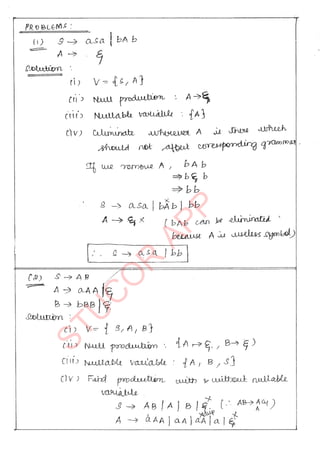 PROBLEMS:
(i) S → asa | bAb
A → ε
Solution:
(i) V = {S, A}
(ii) Null production : A → ε
(iii) Nullable variable : {A}
(iv) Eliminate wherever A is there which
should not affect corresponding grammar.
If we remove A, bAb
⇒ bεb
⇒ bb
S → asa | bAb | bb
A → ε × (bAb can be eliminated
because A is useless symbol)
∴ S → asa | bb
(2) S → AB
A → aAA | ε
B → bBB | ε
Solution:
(i) V = {S, A, B}
(ii) Null production : {A → ε, B → ε}
(iii) Nullable variable : {A, B, S}
(iv) Find production with & without nullable
variable
S → AB | A | B | ε
A → aAA | aA | aA | a | ε
STUCOR APP